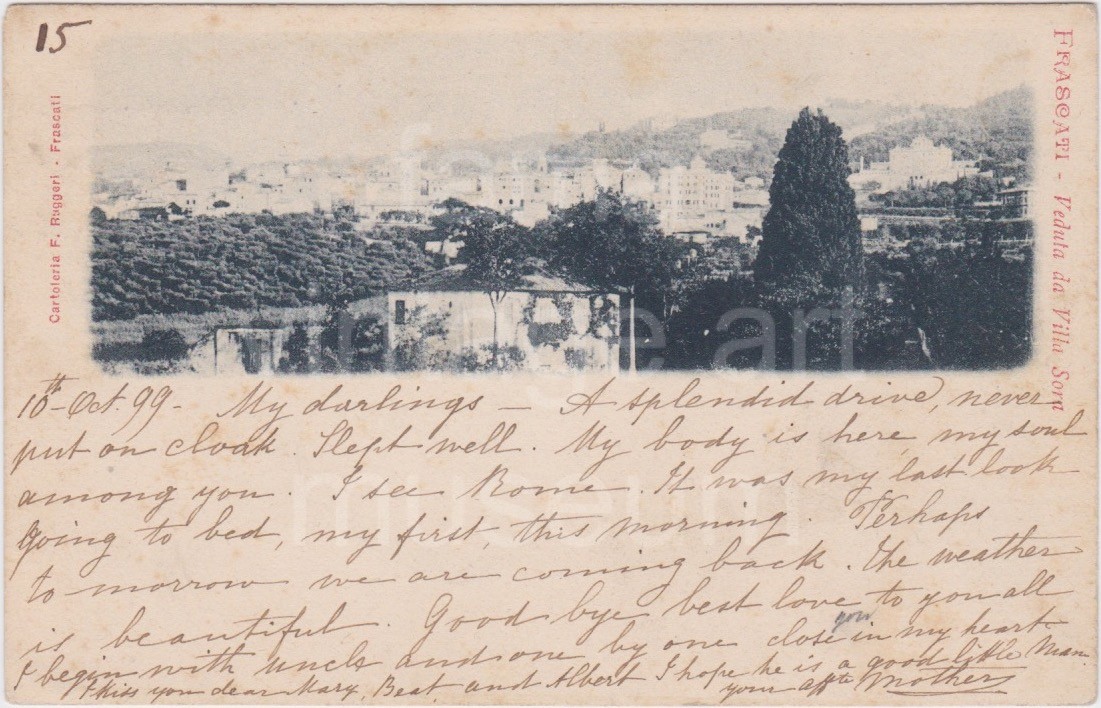 15
Cartoleria F. Ruggeri - Frascati
FRASCATI - Veduta da Villa Sora
fake
vintage art
museum
10th Oct. 99 - My darlings — A splendid drive, never
put on cloak. Slept well. My body is here, my soul
among you. I see Rome. It was my last look
going to bed, my first, this morning. Perhaps
to morrow we are coming back. The weather
is beautiful. Good bye best love to you all
I begin with uncle and one by one close in my heart
you
I kiss you dear Mary, Beat, and Albert I hope he is a good little Man.
your affte Mother